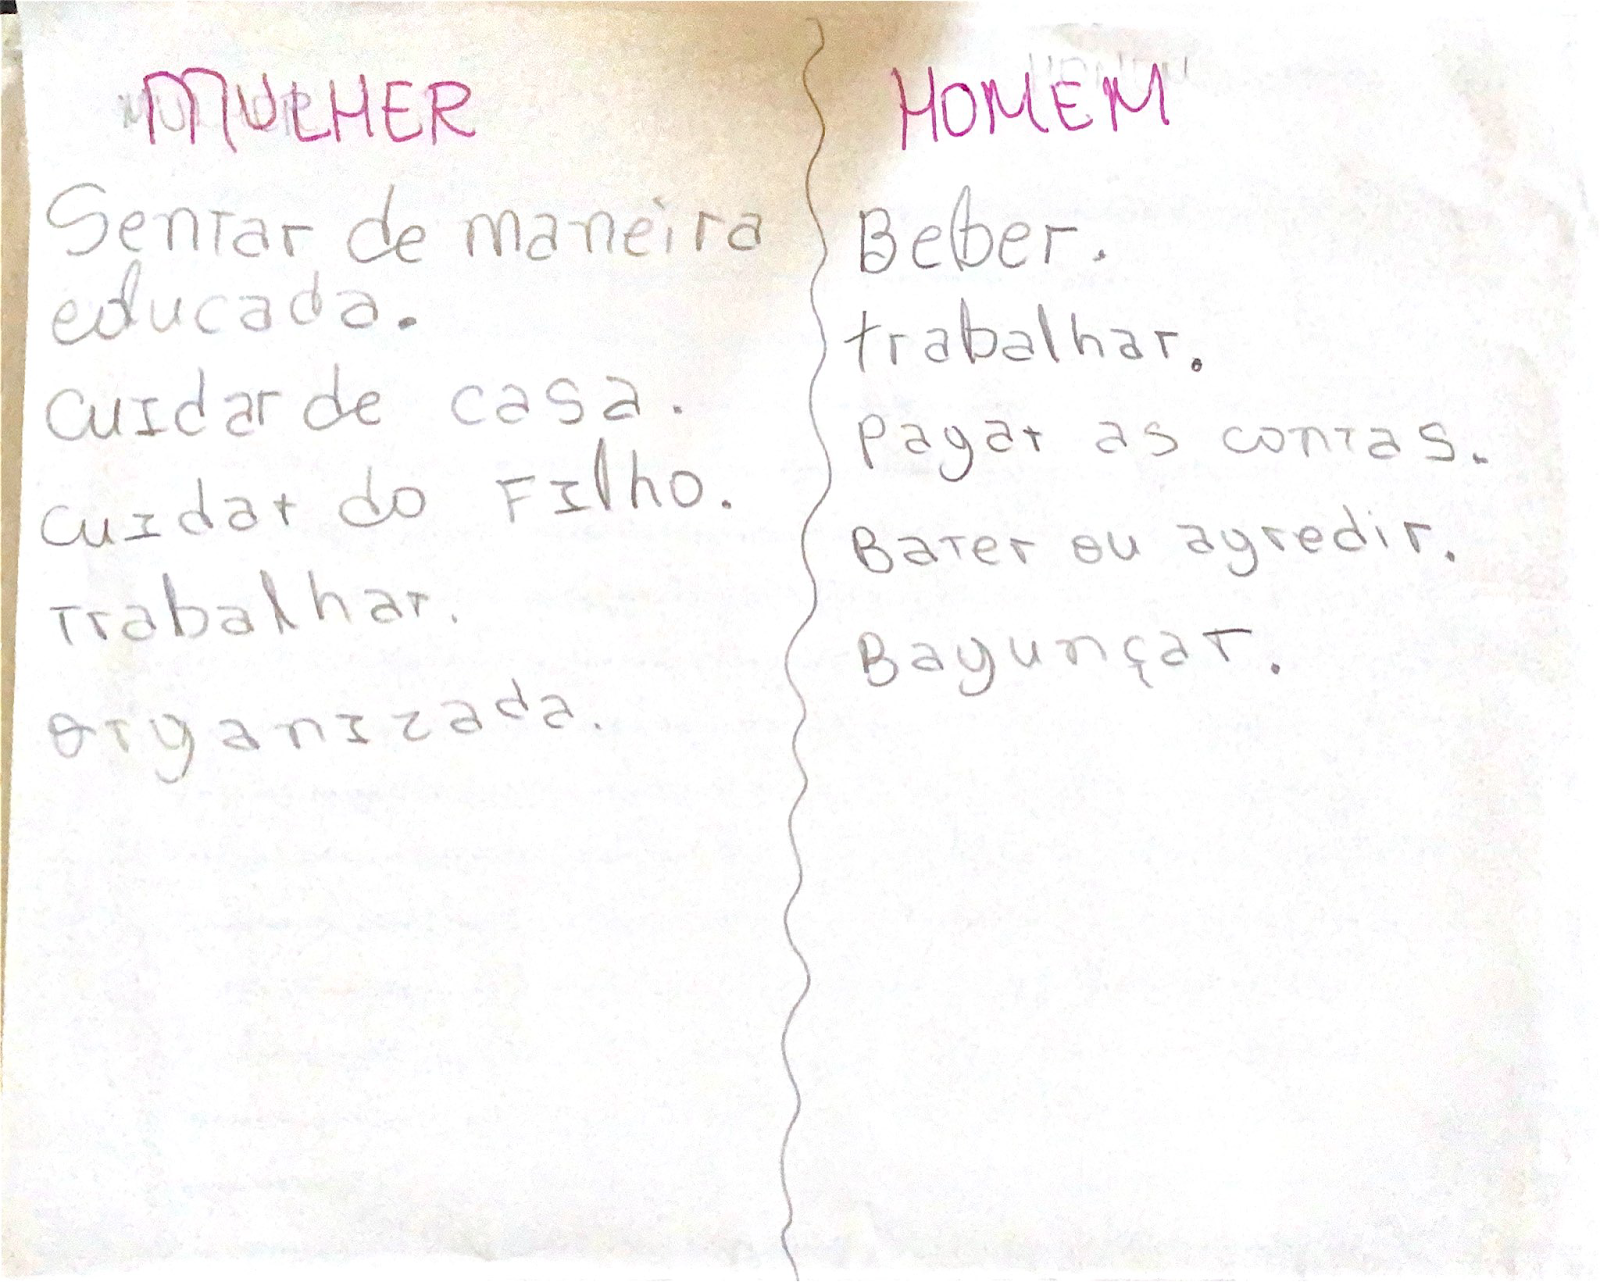 MULHER
Sentar de maneira
educada.
cuidar de casa.
cuidar do Filho.
Trabalhar.
organizada.
HOMEM
Beber.
trabalhar.
Pagar as contas.
Bater ou agredir.
Bagunçar.